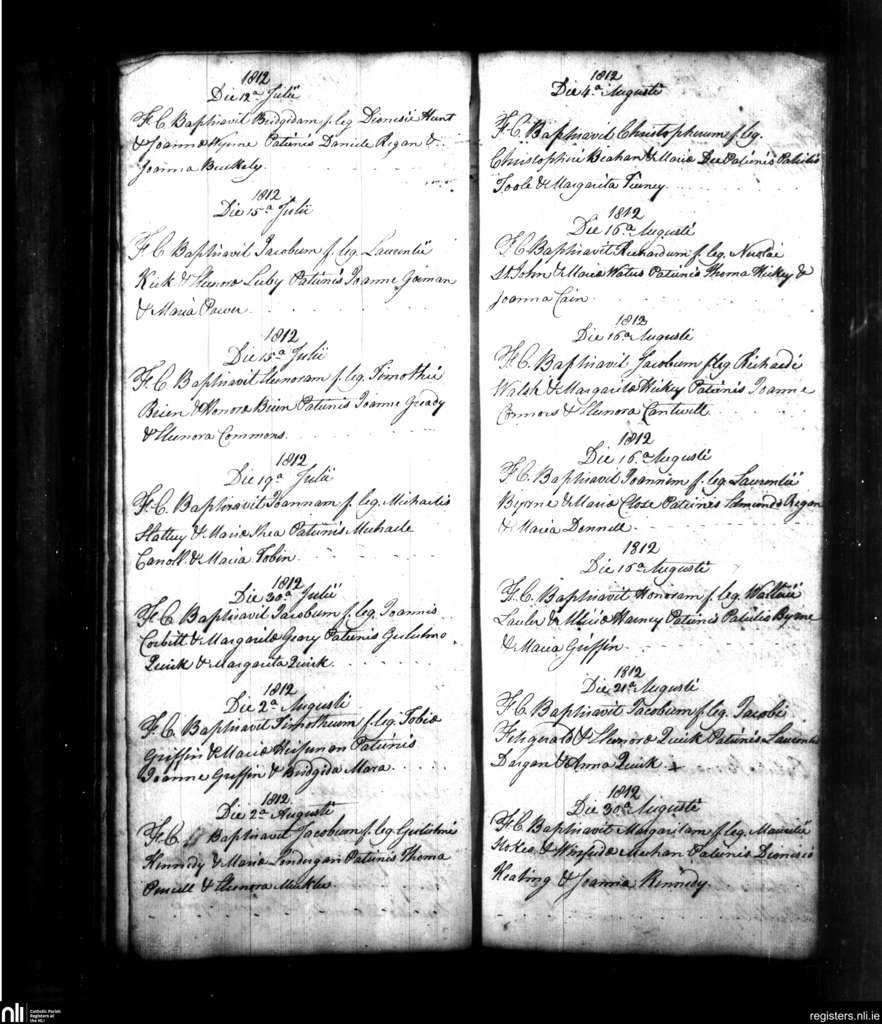 1812
Die 12a Julii
F. C. Baptisavit Bridgidam f. leg. Dionisii Hunt
& Joannæ Kynne Patrinis Daniele Regan &
Joanna Buckely.
1812
Die 15a Julii
F. C. Baptisavit Jacobum f. leg. Laurentii
Kirk & Elenoræ Luby Patrinis Joanne Gorman
& Maria Power.
1812
Die 15a Julii
F. C. Baptisavit Elenoram f. leg. Timothii
Brien & Honoræ Brien Patrinis Joanne Gready
& Elenora Commons.
1812
Die 19a Julii
F. C. Baptisavit Joannam f. leg. Michaelis
Slattery & Mariæ Shea Patrinis Michaele
Carroll & Maria Tobin.
1812
Die 30a Julii
F. C. Baptisavit Jacobum f. leg. Joannis
Corbitt & Margaritæ Geary Patrinis Gulielmo
Quirk & Margarita Quirk.
1812
Die 2a Augusti
F. C. Baptisavit Timotheum f. leg. Tobiæ
Griffin & Mariæ Heffernan Patrinis
Joanne Griffin & Bridgida Mara.
1812
Die 2a Augusti
F. C. Baptisavit Jacobum f. leg. Gulielmi
Kennedy & Mariæ Londergan Patrinis Thoma
Purcell & Elenora Meikler.
1812
Die 4a Augusti
F. C. Baptisavit Christopherum f. leg.
Christopheri Beahan & Mariæ Dee Patrinis Patritio
Toole & Margarita Tierney.
1812
Die 16a Augusti
F. C. Baptisavit Richardum f. leg. Nicolai
St. John & Mariæ Waters Patrinis Thoma Hickey &
Joanna Cain.
1812
Die 16a Augusti
F. C. Baptisavit Jacobum f. leg. Richardi
Walsh & Margaritæ Hickey Patrinis Joanne
Connors & Elenora Cantwell.
1812
Die 16a Augusti
F. C. Baptisavit Joannem f. leg. Laurentii
Byrne & Mariæ Close Patrinis Edmundo Regan
& Maria Donnell.
1812
Die 15a Augusti
F. C. Baptisavit Honoram f. leg. Walteri
Lawler & Harney Patrinis Patritio Byrne
& Maria Griffin.
1812
Die 21a Augusti
F. C. Baptisavit Jacobum f. leg. Jacobi
Fitzgerald & Elenoræ Quirk Patrinis Laurentio
Dargan & Anna Quirk
1812
Die 30a Augusti
F. C. Baptisavit Margaritam f. leg. Mauritii
Stokes & Winifredæ Meehan Patrinis Dionisio
Keating & Joanna Kennedy.
nli Catholic Parish
Registers at
the NLI
registers.nli.ie